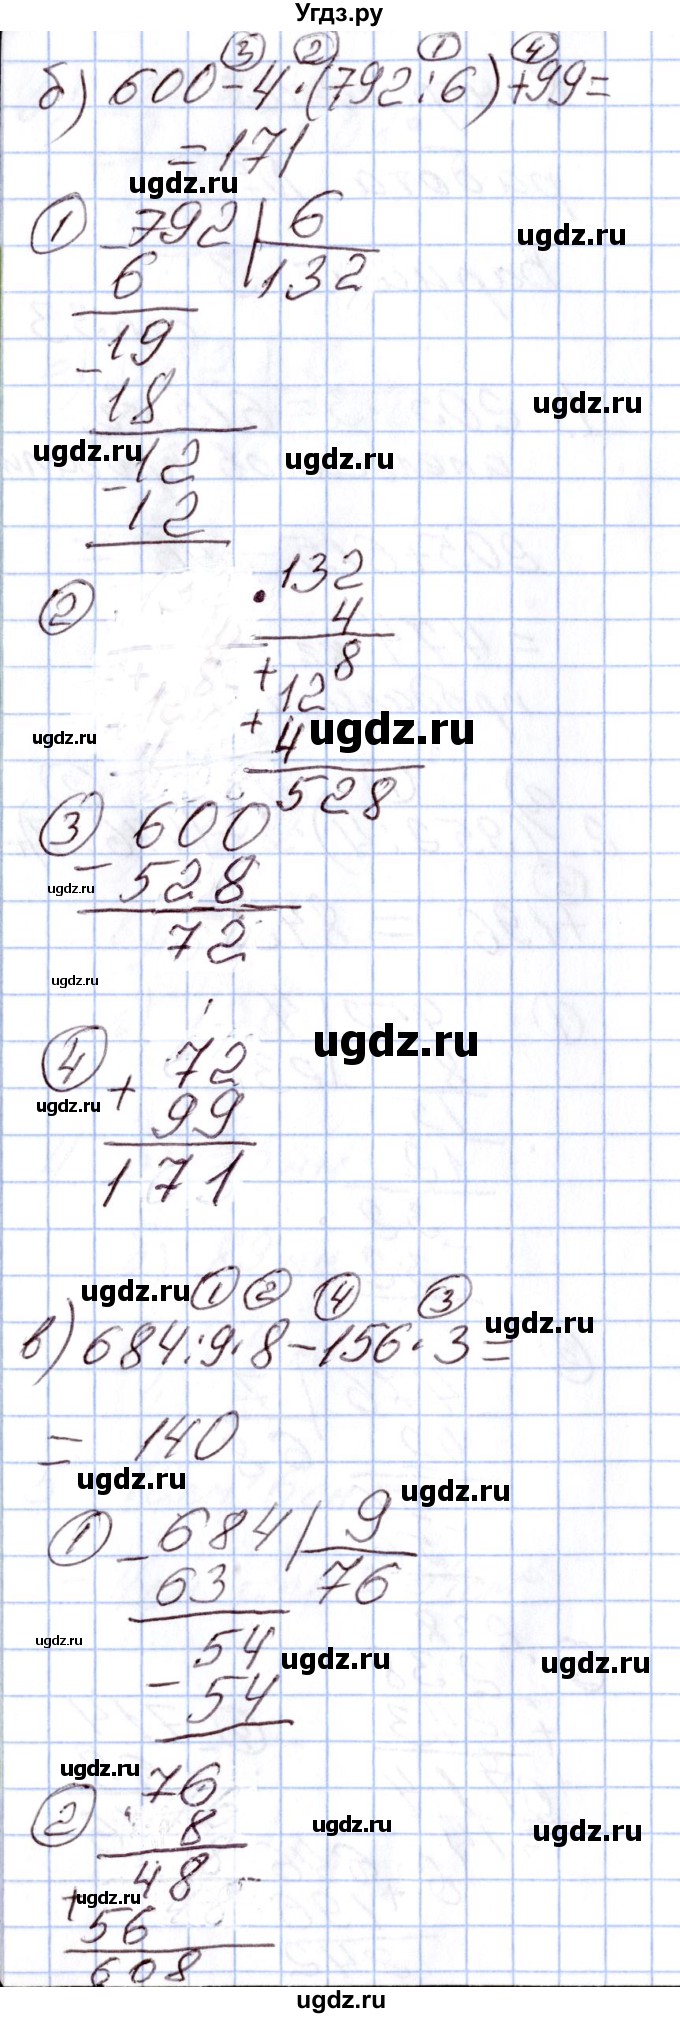 Угдз.ру
③ ② ① ④
б) 600-4·(792:6)+99=
=171
ugdz.ru
① -792 | 6
ugdz.ru
6 132
19
-
18
ugdz.ru
ugdz.ru ugdz.ru
12
-
12
② ·132
4
+ 8
12
+
4
ugdz.ru ugdz.ru
528
③ 600
-
528
ugdz.ru
72
ugdz.ru
④ 72
+
99
ugdz.ru ugdz.ru
171
ugdz.ru ① ② ④ ③
в) 684:9·8-156·3=
ugdz.ru
= 140
ugdz.ru ugdz.ru
① -684 | 9
63 76
ugdz.ru
54
- ugdz.ru ugdz.ru
54
ugdz.ru
76
② ·
8
ugdz.ru ugdz.ru
48
+ ugdz.ru
56
608
ugdz.ru